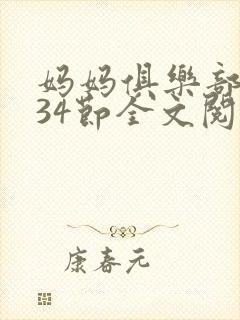 妈妈俱樂部
34節全文閱
康春元